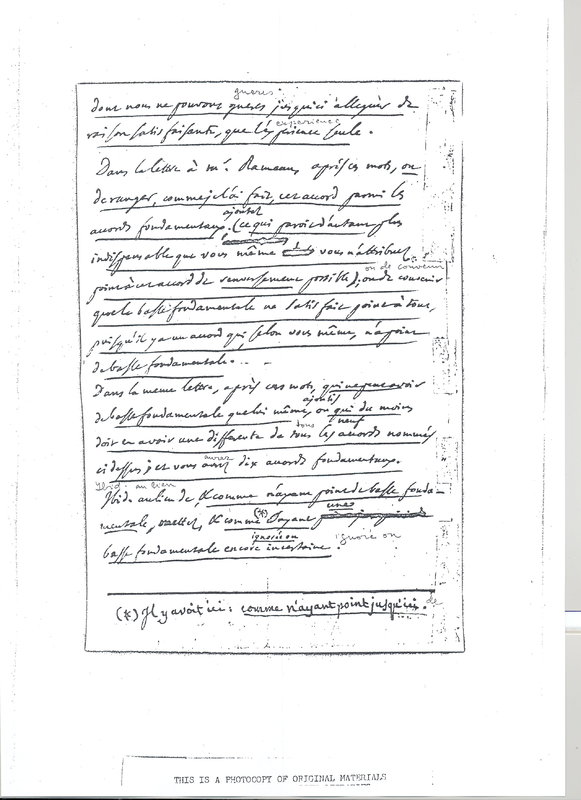 guères.
dont nous ne pouvons guères jusqu'ici alleguer de
experience
raison satisfaisante, que l'expérience seule.
Dans la lettre à Mr. Rameau, après ces mots, ou
de ranger, comme je l'ai fait, cet accord parmi les
ajoutez
accords fondamentaux. (ce qui paroit d'autant plus
indispensable que vous même vous n'attribuez
ou de convenir
point à cet accord de renversement possible), ou de convenir
que la basse fondamentale ne satisfait point à tout,
puisqu'il y a un accord qui selon vous même, n'a point
de basse fondamentale.
Dans la meme lettre, après ces mots, qui ne peut avoir
ajoutez
de basse fondamentale que lui même, ou qui du moins
tous neuf
doit en avoir une differente de tous les accords nommés
aurez
ci dessus; et vous aurez dix accords fondamentaux.
Ibid. au lieu
Ibid. au lieu de, & comme n'ayant point de basse fonda-
une
mentale, mettez, & comme (*) ayant
ignorée ou ignorée ou
basse fondamentale encore incertaine.
(*) Il y avoit ici: comme n'ayant point jusqu'ici. de
THIS IS A PHOTOCOPY OF ORIGINAL MATERIALS